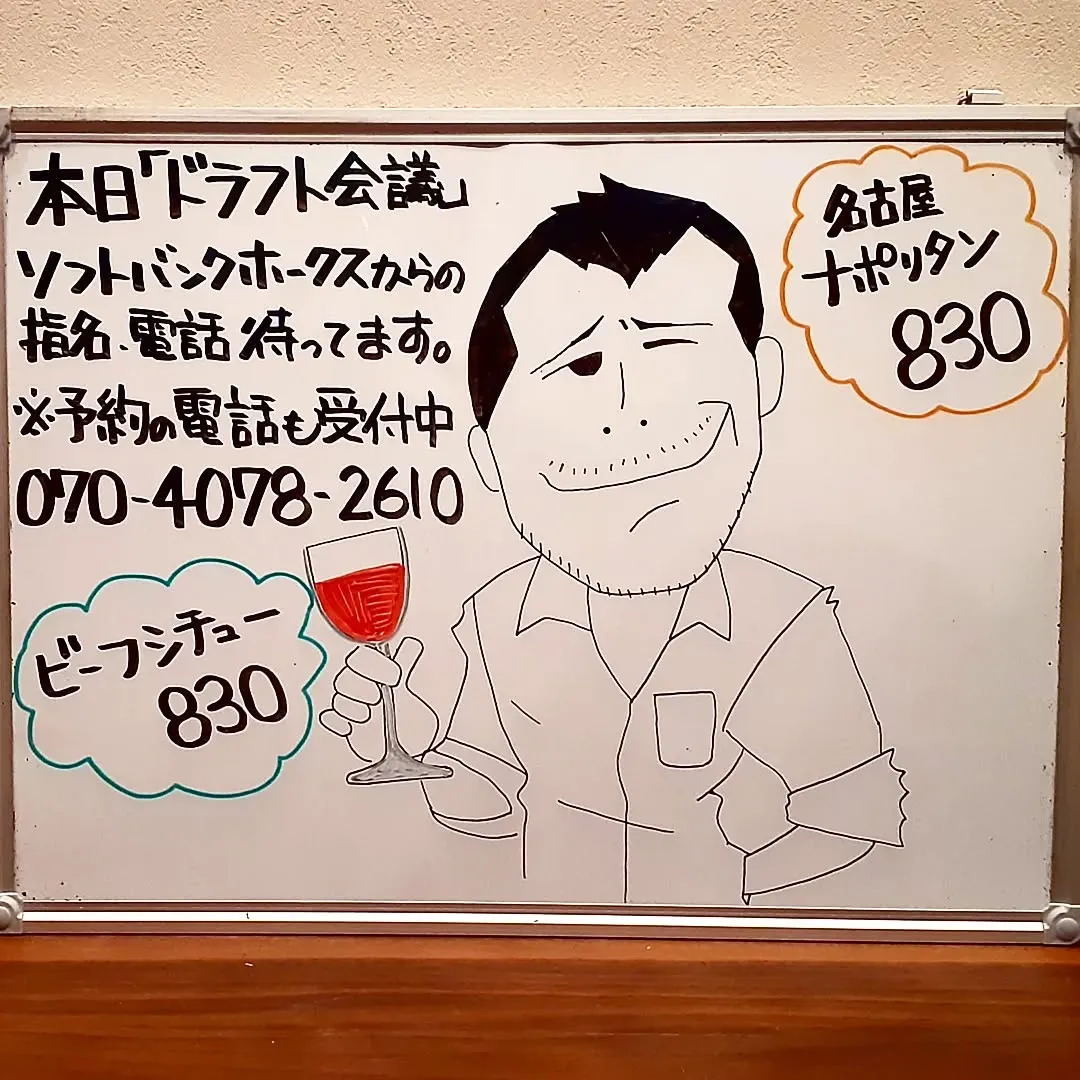 本日「ドラフト会議」
ソフトバンクホークスからの
指名、電話待ってます。
※予約の電話も受付中
070-4078-2610
名古屋
ナポリタン
830
ビーフシチュー
830